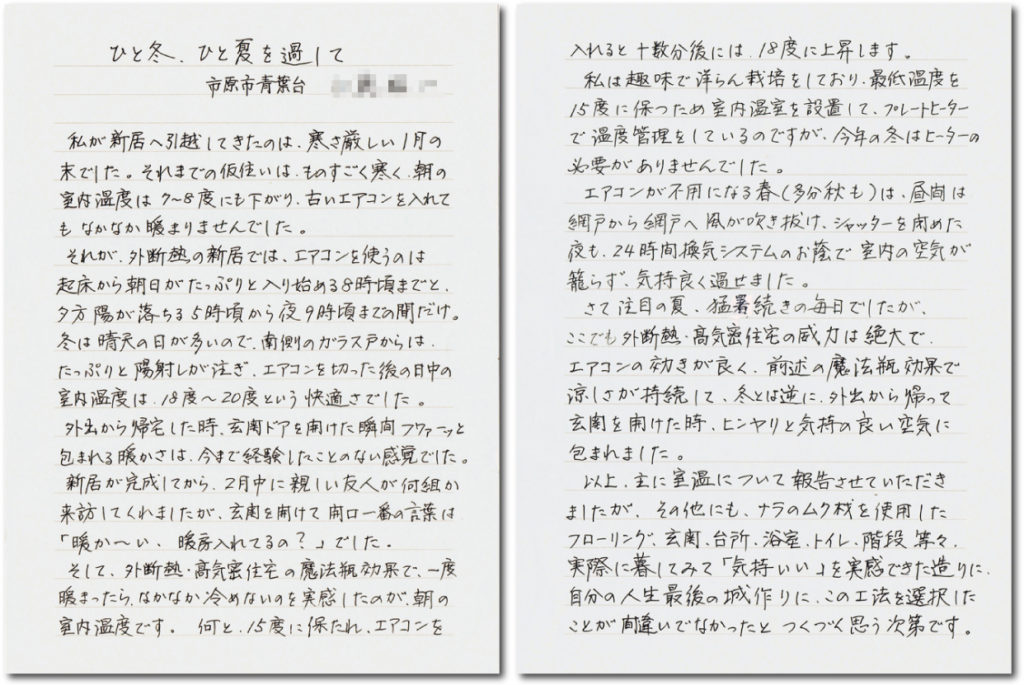 ひと冬、ひと夏を過して
市原市青葉台
私が新居へ引越してきたのは、寒さ厳しい1月の
末でした。それまでの仮住いは、ものすごく寒く、朝の
室内温度は7〜8度にも下がり、古いエアコンを入れて
もなかなか暖まりませんでした。
それが、外断熱の新居では、エアコンを使うのは
起床から朝日がたっぷりと入り始める8時頃までと、
夕方陽が落ちる5時頃から夜9時頃までの間だけ。
冬は晴天の日が多いので、南側のガラス戸からは、
たっぷりと陽射しが注ぎ、エアコンを切った後の日中の
室内温度は、18度〜20度という快適さでした。
外出から帰宅した時、玄関ドアを開けた瞬間フワァーッと
包まれる暖かさは、今まで経験したことのない感覚でした。
新居が完成してから、2月中に親しい友人が何組か
来訪してくれましたが、玄関を開けて開口一番の言葉は
「暖か〜い、暖房入れてるの？」でした。
そして、外断熱・高気密住宅の魔法瓶効果で、一度
暖まったら、なかなか冷めないのを実感したのが、朝の
室内温度です。何と、15度に保たれ、エアコンを
入れると十数分後には、18度に上昇します。
私は趣味で洋らん栽培をしており、最低温度を
15度に保つため室内温室を設置して、プレートヒーター
で温度管理をしているのですが、今年の冬はヒーターの
必要がありませんでした。
エアコンが不用になる春(多分秋も)は、昼間は
網戸から網戸へ風が吹き抜け、シャッターを閉めた
夜も、24時間換気システムのお蔭で室内の空気が
籠らず、気持良く過せました。
さて注目の夏、猛暑続きの毎日でしたが、
ここでも外断熱・高気密住宅の威力は絶大で、
エアコンの効きが良く、前述の魔法瓶効果で
涼しさが持続して、冬とは逆に、外出から帰って
玄関を開けた時、ヒンヤリと気持の良い空気に
包まれました。
以上、主に室温について報告させていただき
ましたが、その他にも、ナラのムク材を使用した
フローリング、玄関、台所、浴室、トイレ、階段等々、
実際に暮してみて「気持いい」を実感できた造りに、
自分の人生最後の城作りに、この工法を選択した
ことが間違いでなかったとつくづく思う次第です。